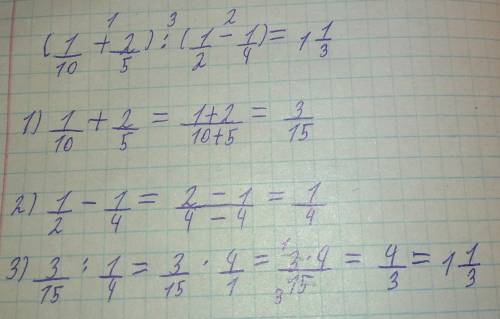 1 3 2
(1/10 + 2/5) : (1/2 - 1/4) = 1 1/3
1) 1/10 + 2/5 = 1+2/10+5 = 3/15
2) 1/2 - 1/4 = 2-1/4-4 = 1/4
3) 3/15 : 1/4 = 3/15 · 4/1 = 1 3·4/15 3 = 4/3 = 1 1/3